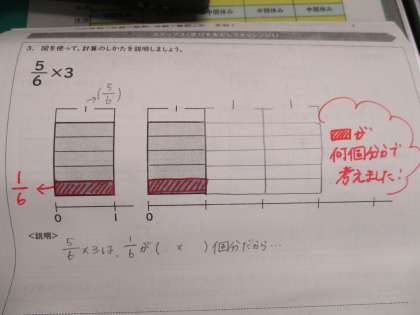 中間休み 中間休み 中間休み
3. 図を使って、計算のしかたを説明しましょう。
5/6 × 3
→(5/6)
1 1 1 1
が
何個分かで
考えました!
1/6
0 1 0
<説明>
5/6×3は、1/6が( × )個分だから…